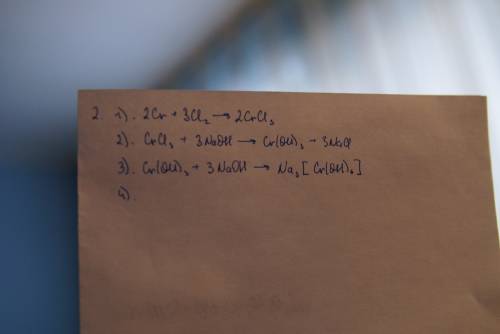 2. 1). 2Cr + 3Cl₂ → 2CrCl₃
2). CrCl₃ + 3NaOH → Cr(OH)₃ + 3NaCl
3). Cr(OH)₃ + 3NaOH → Na₃[Cr(OH)₆]
4).